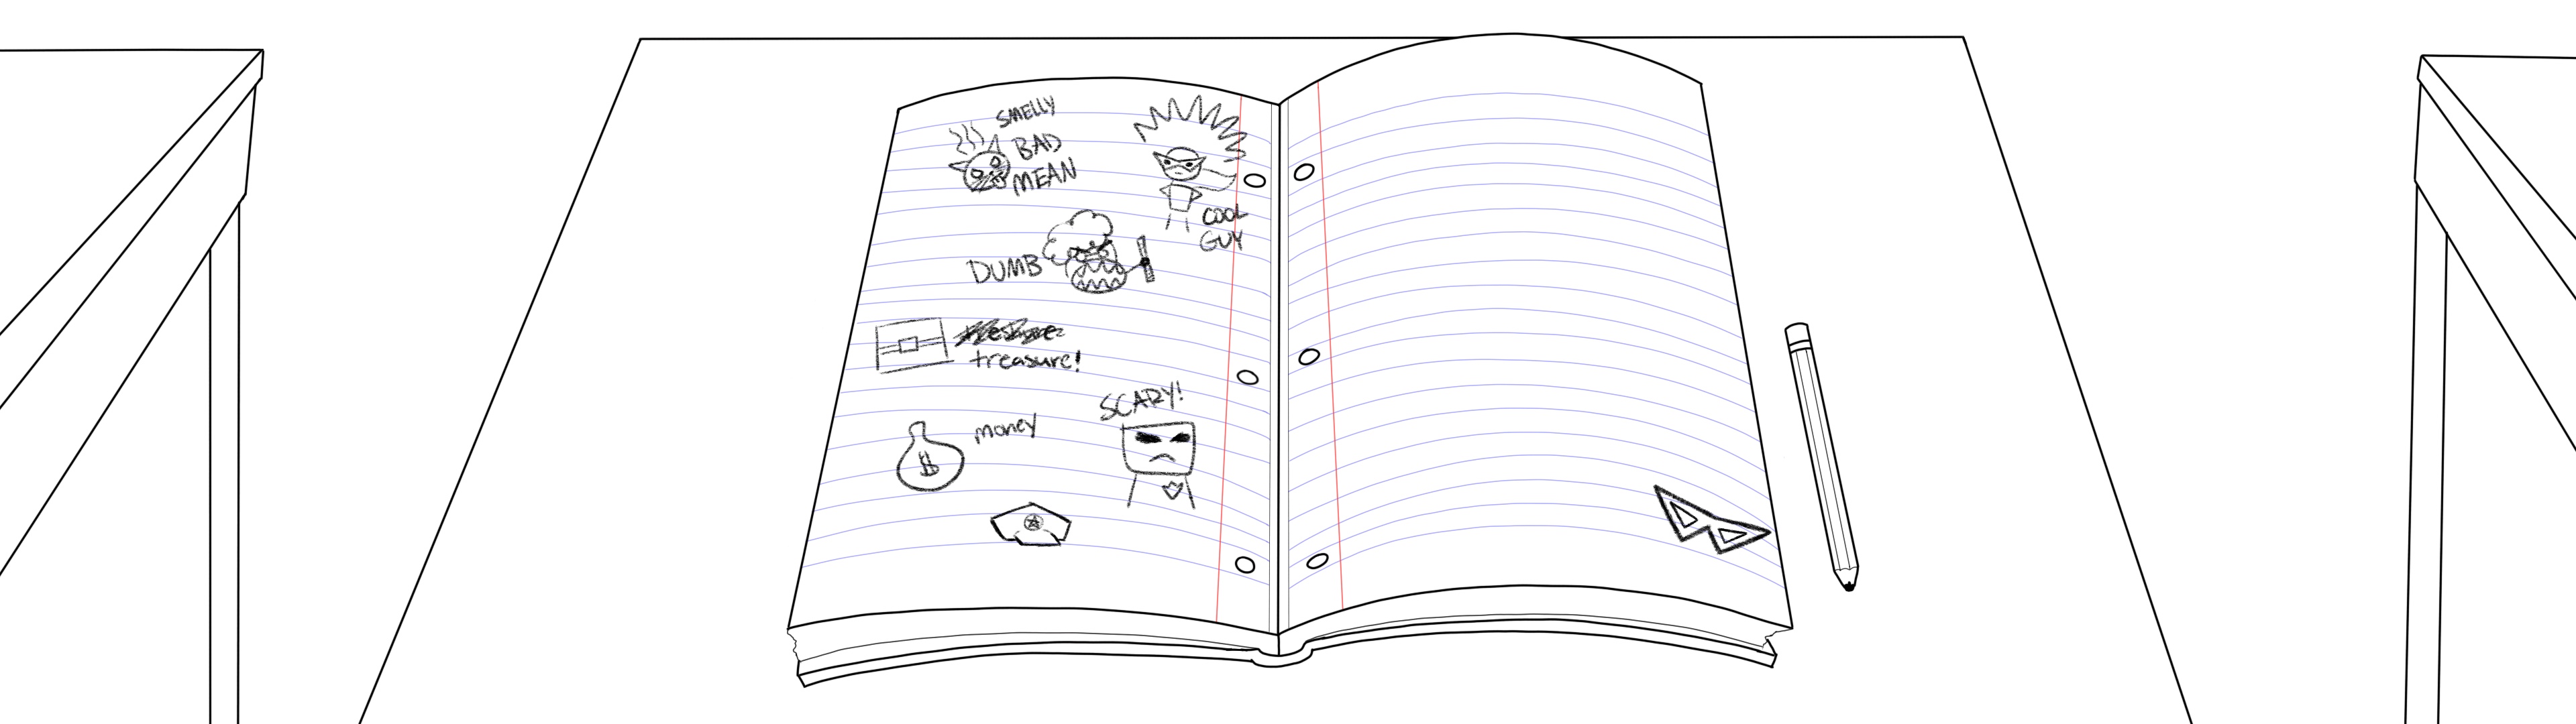 SMELLY
BAD
MEAN
COOL
GUY
DUMB
treasure!
money
$
SCARY!